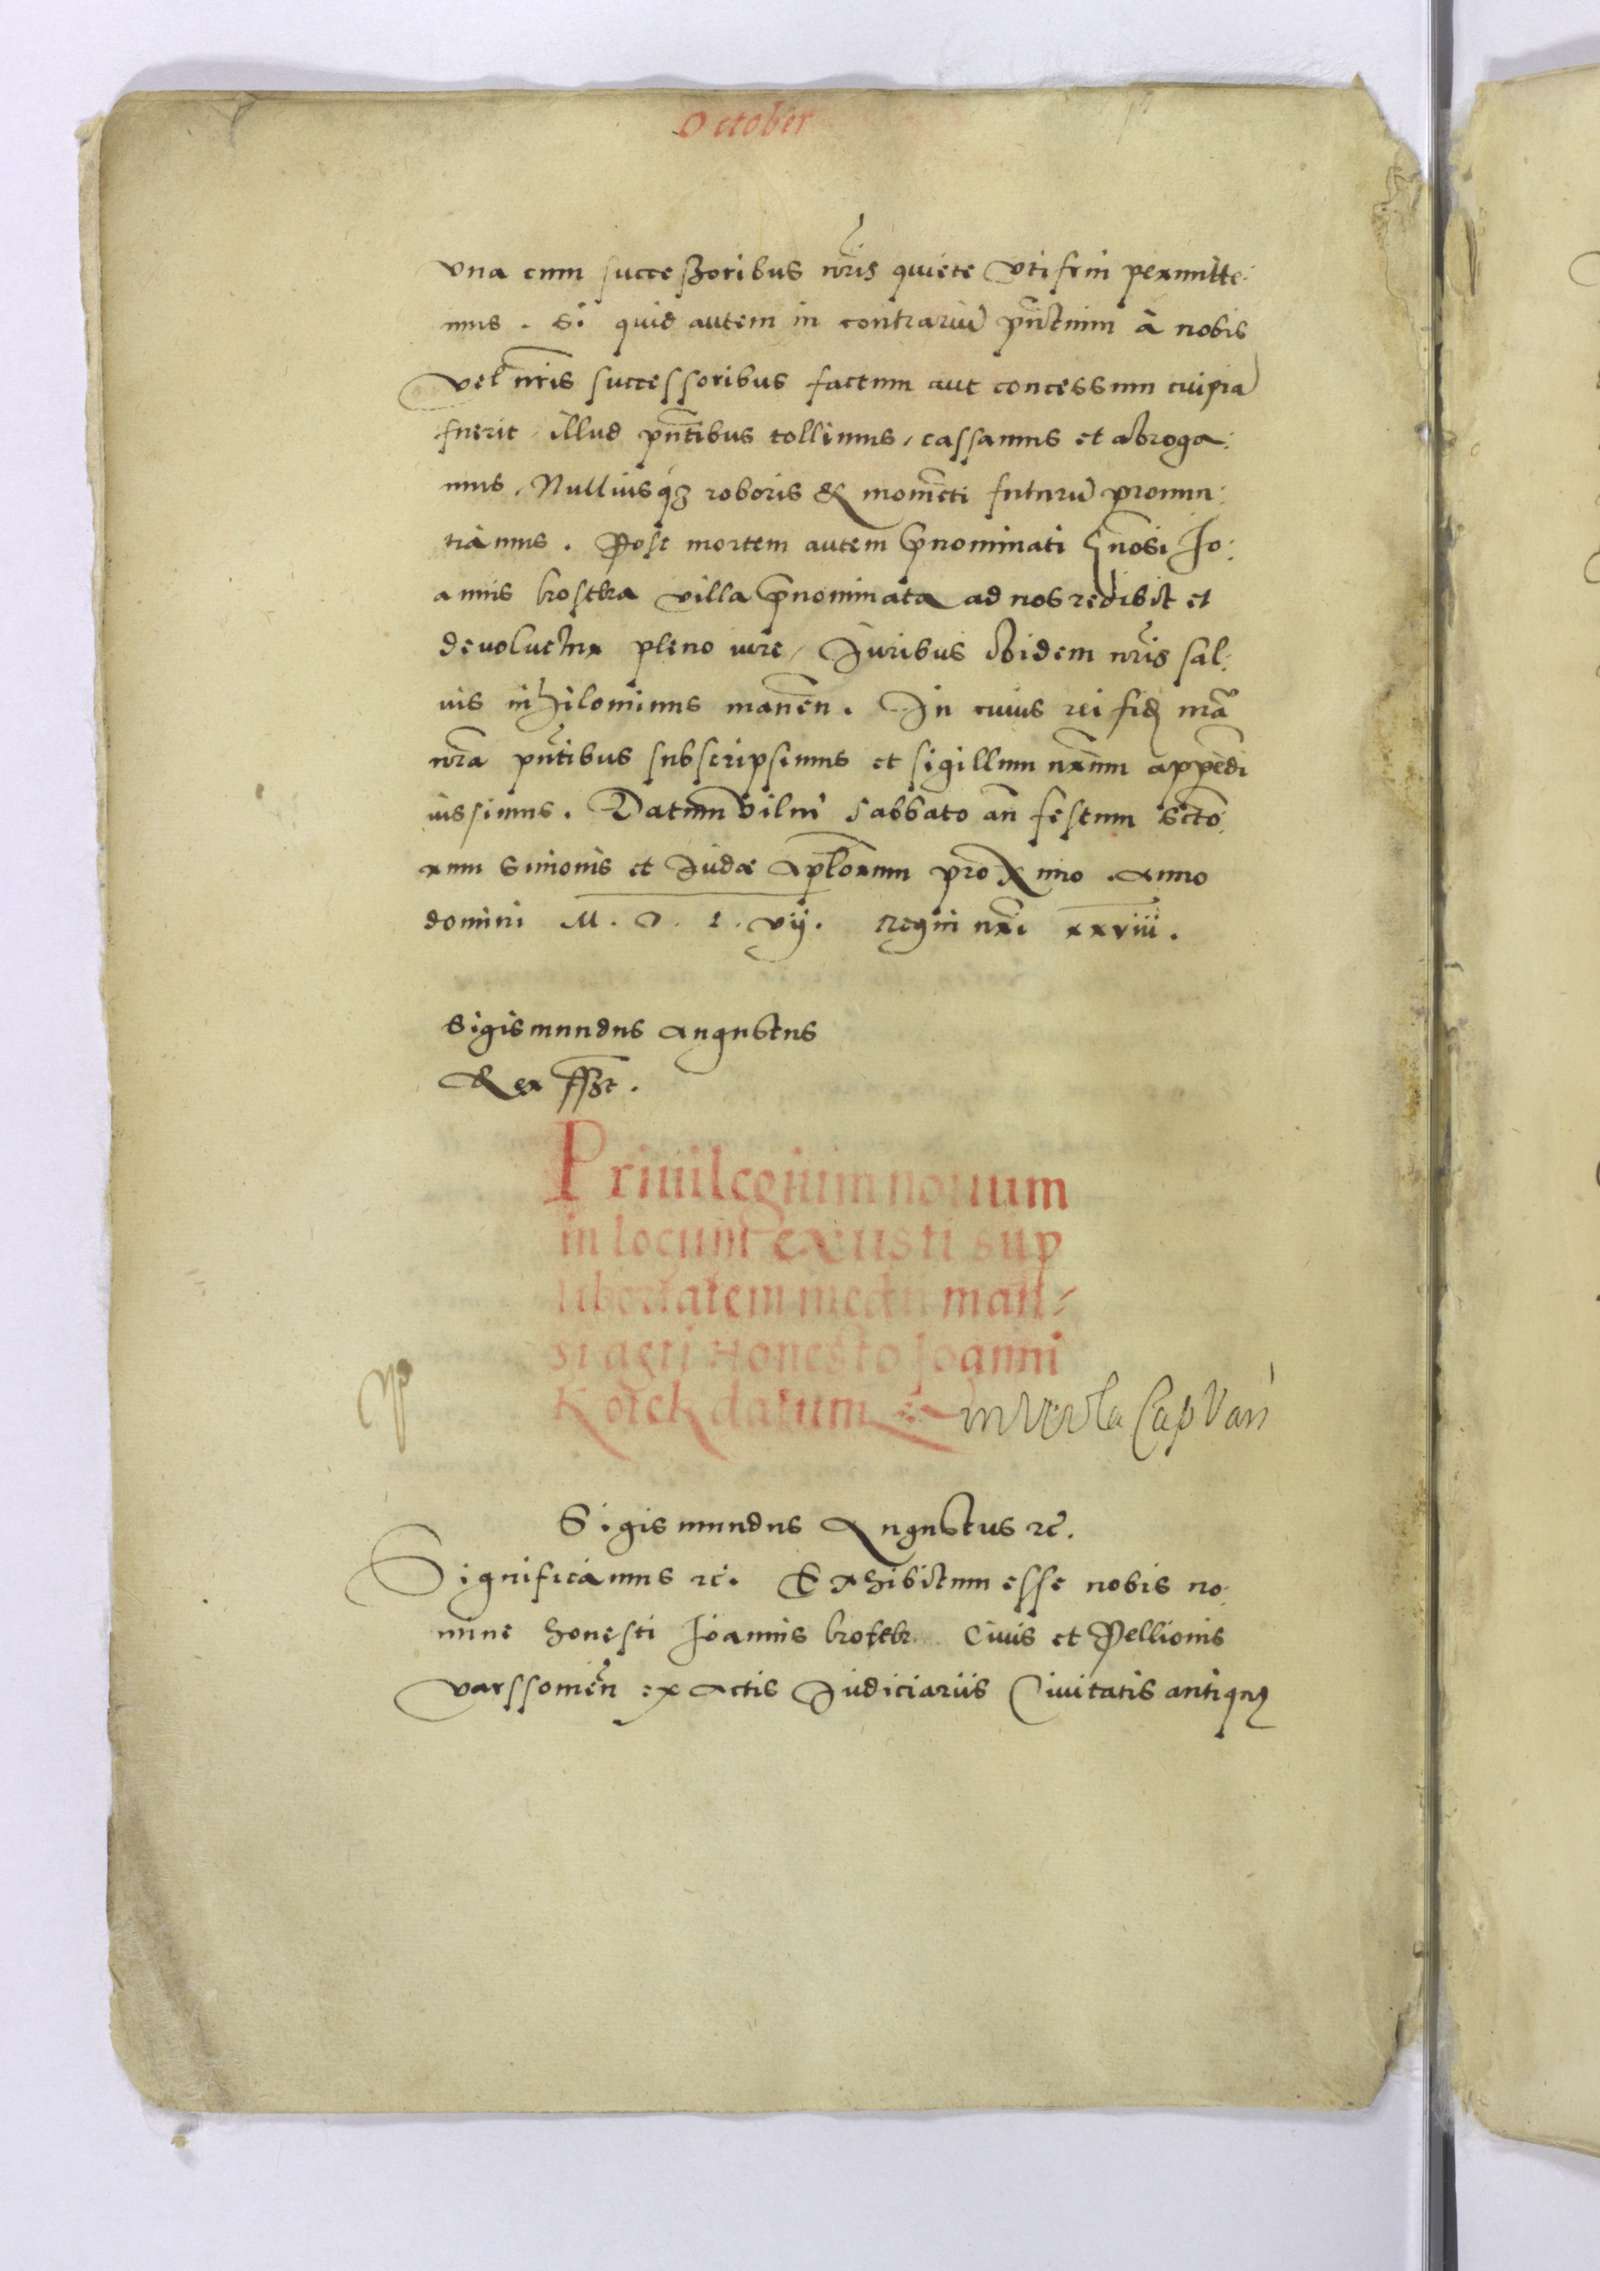 October
vna cum successoribus nr̃is quiete vti frui permitte:
mus. Si quid autem in contrariũ pñtium à nobis
vel nr̃is successoribus factum aut concessum cuipiã
fuerit, illud pñtibus tollimus, cassamus et abroga:
mus, Nulliusq3 roboris & momẽti futurũ pronun:
tiamus. Post mortem autem p̃nominati Gñosi Jo:
annis kostka villa p̃nominata ad nos redibit et
devoluetur pleno iure, Juribus ibidem nr̃is sal:
uis nihilominus manẽn. In cuius rei fidẽ mãu
nr̃a pñtibus subscripsimus et sigillum nr̃um appẽdi
iussimus. Datum Vilnȩ Sabbato añ festum Sctõ
rum Simonis et Judæ Aplõrum proximo. Anno
domini M. D. L. vij. Regni nr̃i xxviii.
Sigismundus Augustus
Rex sszt.
Priuilegium nouum
in locum exusti sup
libertatem medii man-
si agri Honesto Joanni
Kotek datum
in Wola Cap Vars
Sigismundus Augustus rc̃.
Significamus rc̃. Exhibitum esse nobis no:
mine honesti Joannis kotek Ciuis et Pellionis
varssouiẽn ex Actis Judiciariis Ciuitatis antiquȩ